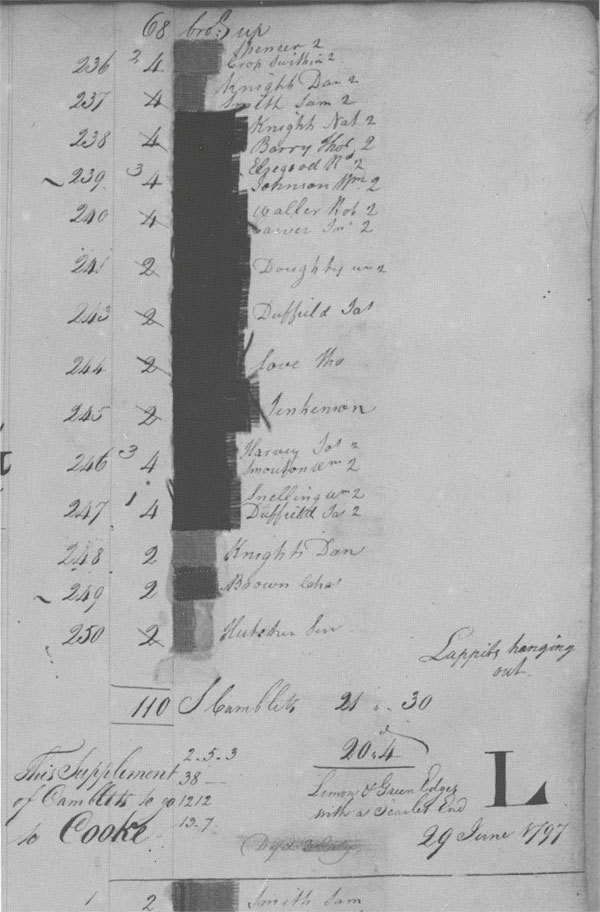 68 bro.t up
Spencer 2
236 2 4 Crop Swithin 2
Knights Dan 2
237 4 Smith Sam 2
Knight Nat 2
238 4 Barry Tho.s 2
Elzegood R.d 2
239 3 4 Johnson W.m 2
Waller Rob 2
240 4 2
241 2 Doughty W.m 2
243 2 Duffield Ja.s
244 2 Love Tho
245 2 Jenkinson
Harvey Jo.s 2
246 3 4 Smouton W.m 2
Snelling W.m 2
247 1 4 Duffield Ja.s 2
248 2 Knights Dan
249 2 Brown Cha.s
250 2
Lappits hanging
out
110 S Camblets 21 .. 30
2.5.3 20.4
This Supplement 38
of Camblets to go 12 12
to Cooke 13.7
Lemon & Green Edges
with a Scarlet End
L
29 June 1797
1 2 Smith Sam